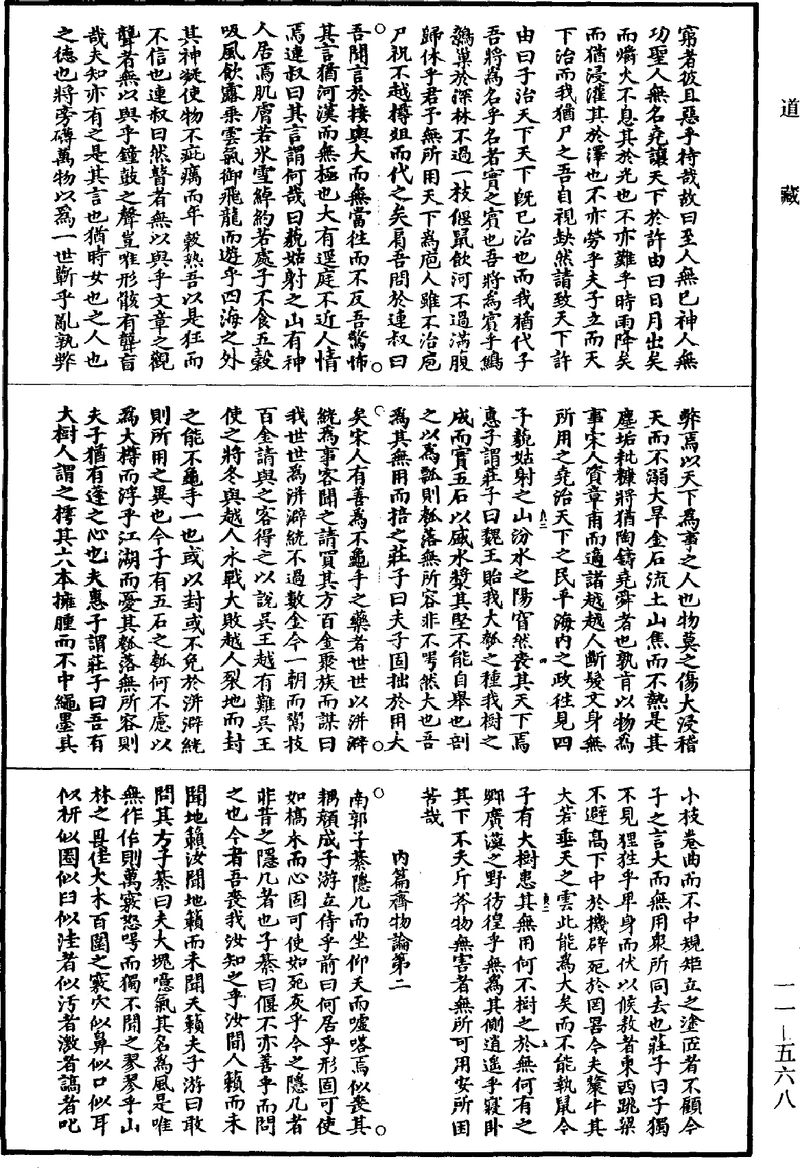 道藏
窮者彼且惡乎待哉故曰至人無已神人無
功聖人無名堯讓天下於許由曰日月出矣
而爝火不息其於光也不亦難乎時雨降矣
而猶浸灌其於澤也不亦勞乎夫子立而天
下治而我猶尸之吾自視缺然請致天下許
由曰子治天下天下既已治也而我猶代子
吾將為名乎名者實之賓也吾將為賓乎鷦
鷯巢於深林不過一枝偃鼠飲河不過滿腹
歸休乎君予無所用天下為庖人雖不治庖
尸祝不越樽俎而代之矣肩吾問於連叔曰
吾聞言於接輿大而無當往而不反吾驚怖
其言猶河漢而無極也大有逕庭不近人情
焉連叔曰其言謂何哉曰藐姑射之山有神
人居焉肌膚若氷雪綽約若處子不食五穀
吸風飲露乘雲氣御飛龍而遊乎四海之外
其神凝使物不疵癘而年穀熟吾以是狂而
不信也連叔曰然瞽者無以與乎文章之觀
聾者無以與乎鐘鼓之聲豈唯形骸有聾盲
哉夫知亦有之是其言也猶時女也之人也
之德也將旁礴萬物以為一世蘄乎亂孰弊
弊焉以天下為事之人也物莫之傷大浸稽
天而不溺大旱金石流土山焦而不熱是其
塵垢粃糠將猶陶鑄堯舜者也孰肯以物為
事宋人資章甫而適諸越越人斷髮文身無
所用之堯治天下之民平海内之政往見四
子藐姑射之山汾水之陽窅然喪其天下焉
惠子謂莊子曰魏王貽我大瓠之種我樹之
成而實五石以盛水漿其堅不能自舉也剖
之以為瓢則瓠落無所容非不呺然大也吾
為其無用而掊之莊子曰夫子固拙於用大
矣宋人有善為不龜手之藥者世世以洴澼
絖為事客聞之請買其方百金聚族而謀曰
我世世為洴澼絖不過數金今一朝而鬻技
百金請與之客得之以說吳王越有難吳王
使之將冬與越人水戰大敗越人裂地而封
之能不龜手一也或以封或不免於洴澼絖
則所用之異也今子有五石之瓠何不慮以
為大樽而浮乎江湖而憂其瓠落無所容則
夫子猶有蓬之心也夫惠子謂莊子曰吾有
大樹人謂之樗其大本擁腫而不中繩墨其
小枝卷曲而不中規矩立之塗匠者不顧今
子之言大而無用衆所同去也莊子曰子獨
不見狸狌乎卑身而伏以候敖者東西跳梁
不避高下中於機辟死於罔罟今夫斄牛其
大若垂天之雲此能為大矣而不能執鼠今
子有大樹患其無用何不樹之於無何有之
鄉廣漠之野彷徨乎無為其側逍遥乎寢卧
其下不夭斤斧物無害者無所可用安所困
苦哉
内篇齊物論第二
南郭子綦隱几而坐仰天而嘘嗒焉似喪其
耦顔成子游立侍乎前曰何居乎形固可使
如槁木而心固可使如死灰乎今之隱几者
非昔之隱几者也子綦曰偃不亦善乎而問
之也今者吾喪我汝知之乎汝聞人籟而未
聞地籟汝聞地籟而未聞天籟夫子游曰敢
問其方子綦曰夫大塊噫氣其名為風是唯
無作作則萬竅怒呺而獨不聞之翏翏乎山
林之畏佳大木百圍之竅穴似鼻似口似耳
似枅似圈似臼似洼者似污者激者謞者叱
一一—五六八